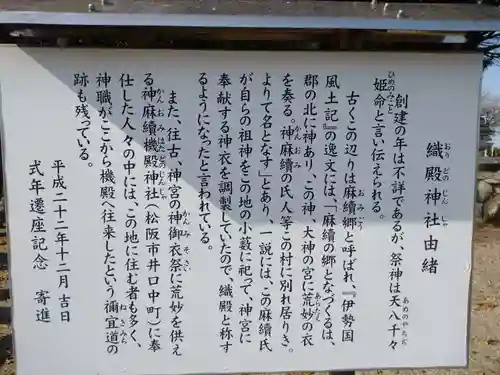 織殿神社由緒
おりどのじんじゃ
創建の年は不詳であるが、祭神は天八千々
あめのやちぢ
姫命と言い伝えられる。
ひめのみこと
古くこの辺りは麻績郷と呼ばれ、『伊勢国
おみごう
風土記』の逸文には、「麻績の郷となづくるは、
郡の北に神あり、この神、大神の宮に荒妙の衣
あらたえ
を奏る。神麻績の氏人等この村に別れ居りき。
かんおみ
よりて名となす」とあり、一説には、この麻績氏
が自らの祖神をこの地の小藪に祀って、神宮に
奉献する神衣を調製していたので、織殿と称す
るようになったと言われている。
また、往古、神宮の神御衣祭に荒妙を供え
かんみそさい
る神麻續機殿神社(松阪市井口中町)に奉
かんおみはたどのじんじゃ
仕した人々の中には、この地に住む者も多く、
神職がここから機殿へ往来したという禰宜道の
ねぎみち
跡も残っている。
平成二十二年十二月吉日
式年遷座記念 寄進